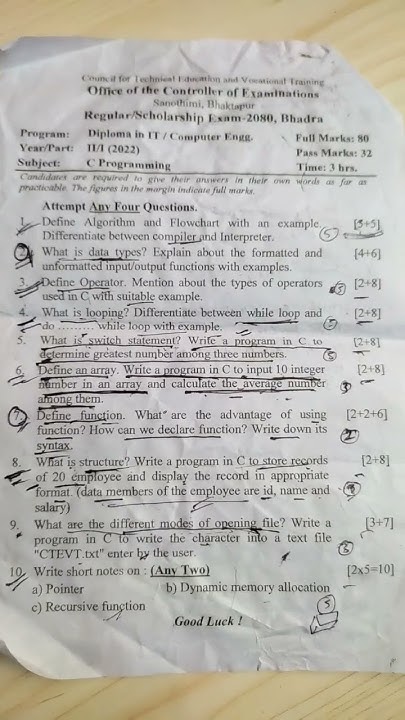 Council for Technical Education and Vocational Training
Office of the Controller of Examinations
Sanothimi, Bhaktapur
Regular/Scholarship Exam-2080, Bhadra
Program: Diploma in IT / Computer Engg. Full Marks: 80
Year/Part: II/I (2022) Pass Marks: 32
Subject: C Programming Time: 3 hrs.
Candidates are required to give their answers in their own words as far as
practicable. The figures in the margin indicate full marks.
Attempt Any Four Questions.
1. Define Algorithm and Flowchart with an example. [5+5]
Differentiate between compiler and Interpreter. 5
2. What is data types? Explain about the formatted and [4+6]
unformatted input/output functions with examples.
3. Define Operator. Mention about the types of operators [2+8]
used in C with suitable example.
4. What is looping? Differentiate between while loop and [2+8]
do ......... while loop with example.
5. What is switch statement? Write a program in C to [2+8]
determine greatest number among three numbers.
6. Define an array. Write a program in C to input 10 integer [2+8]
number in an array and calculate the average number
among them.
7. Define function. What are the advantage of using [2+2+6]
function? How can we declare function? Write down its
syntax.
8. What is structure? Write a program in C to store records [2+8]
of 20 employee and display the record in appropriate
format. (data members of the employee are id, name and
salary)
9. What are the different modes of opening file? Write a [3+7]
program in C to write the character into a text file
"CTEVT.txt" enter by the user.
10. Write short notes on : (Any Two) [2x5=10]
a) Pointer b) Dynamic memory allocation
c) Recursive function
5
Good Luck !